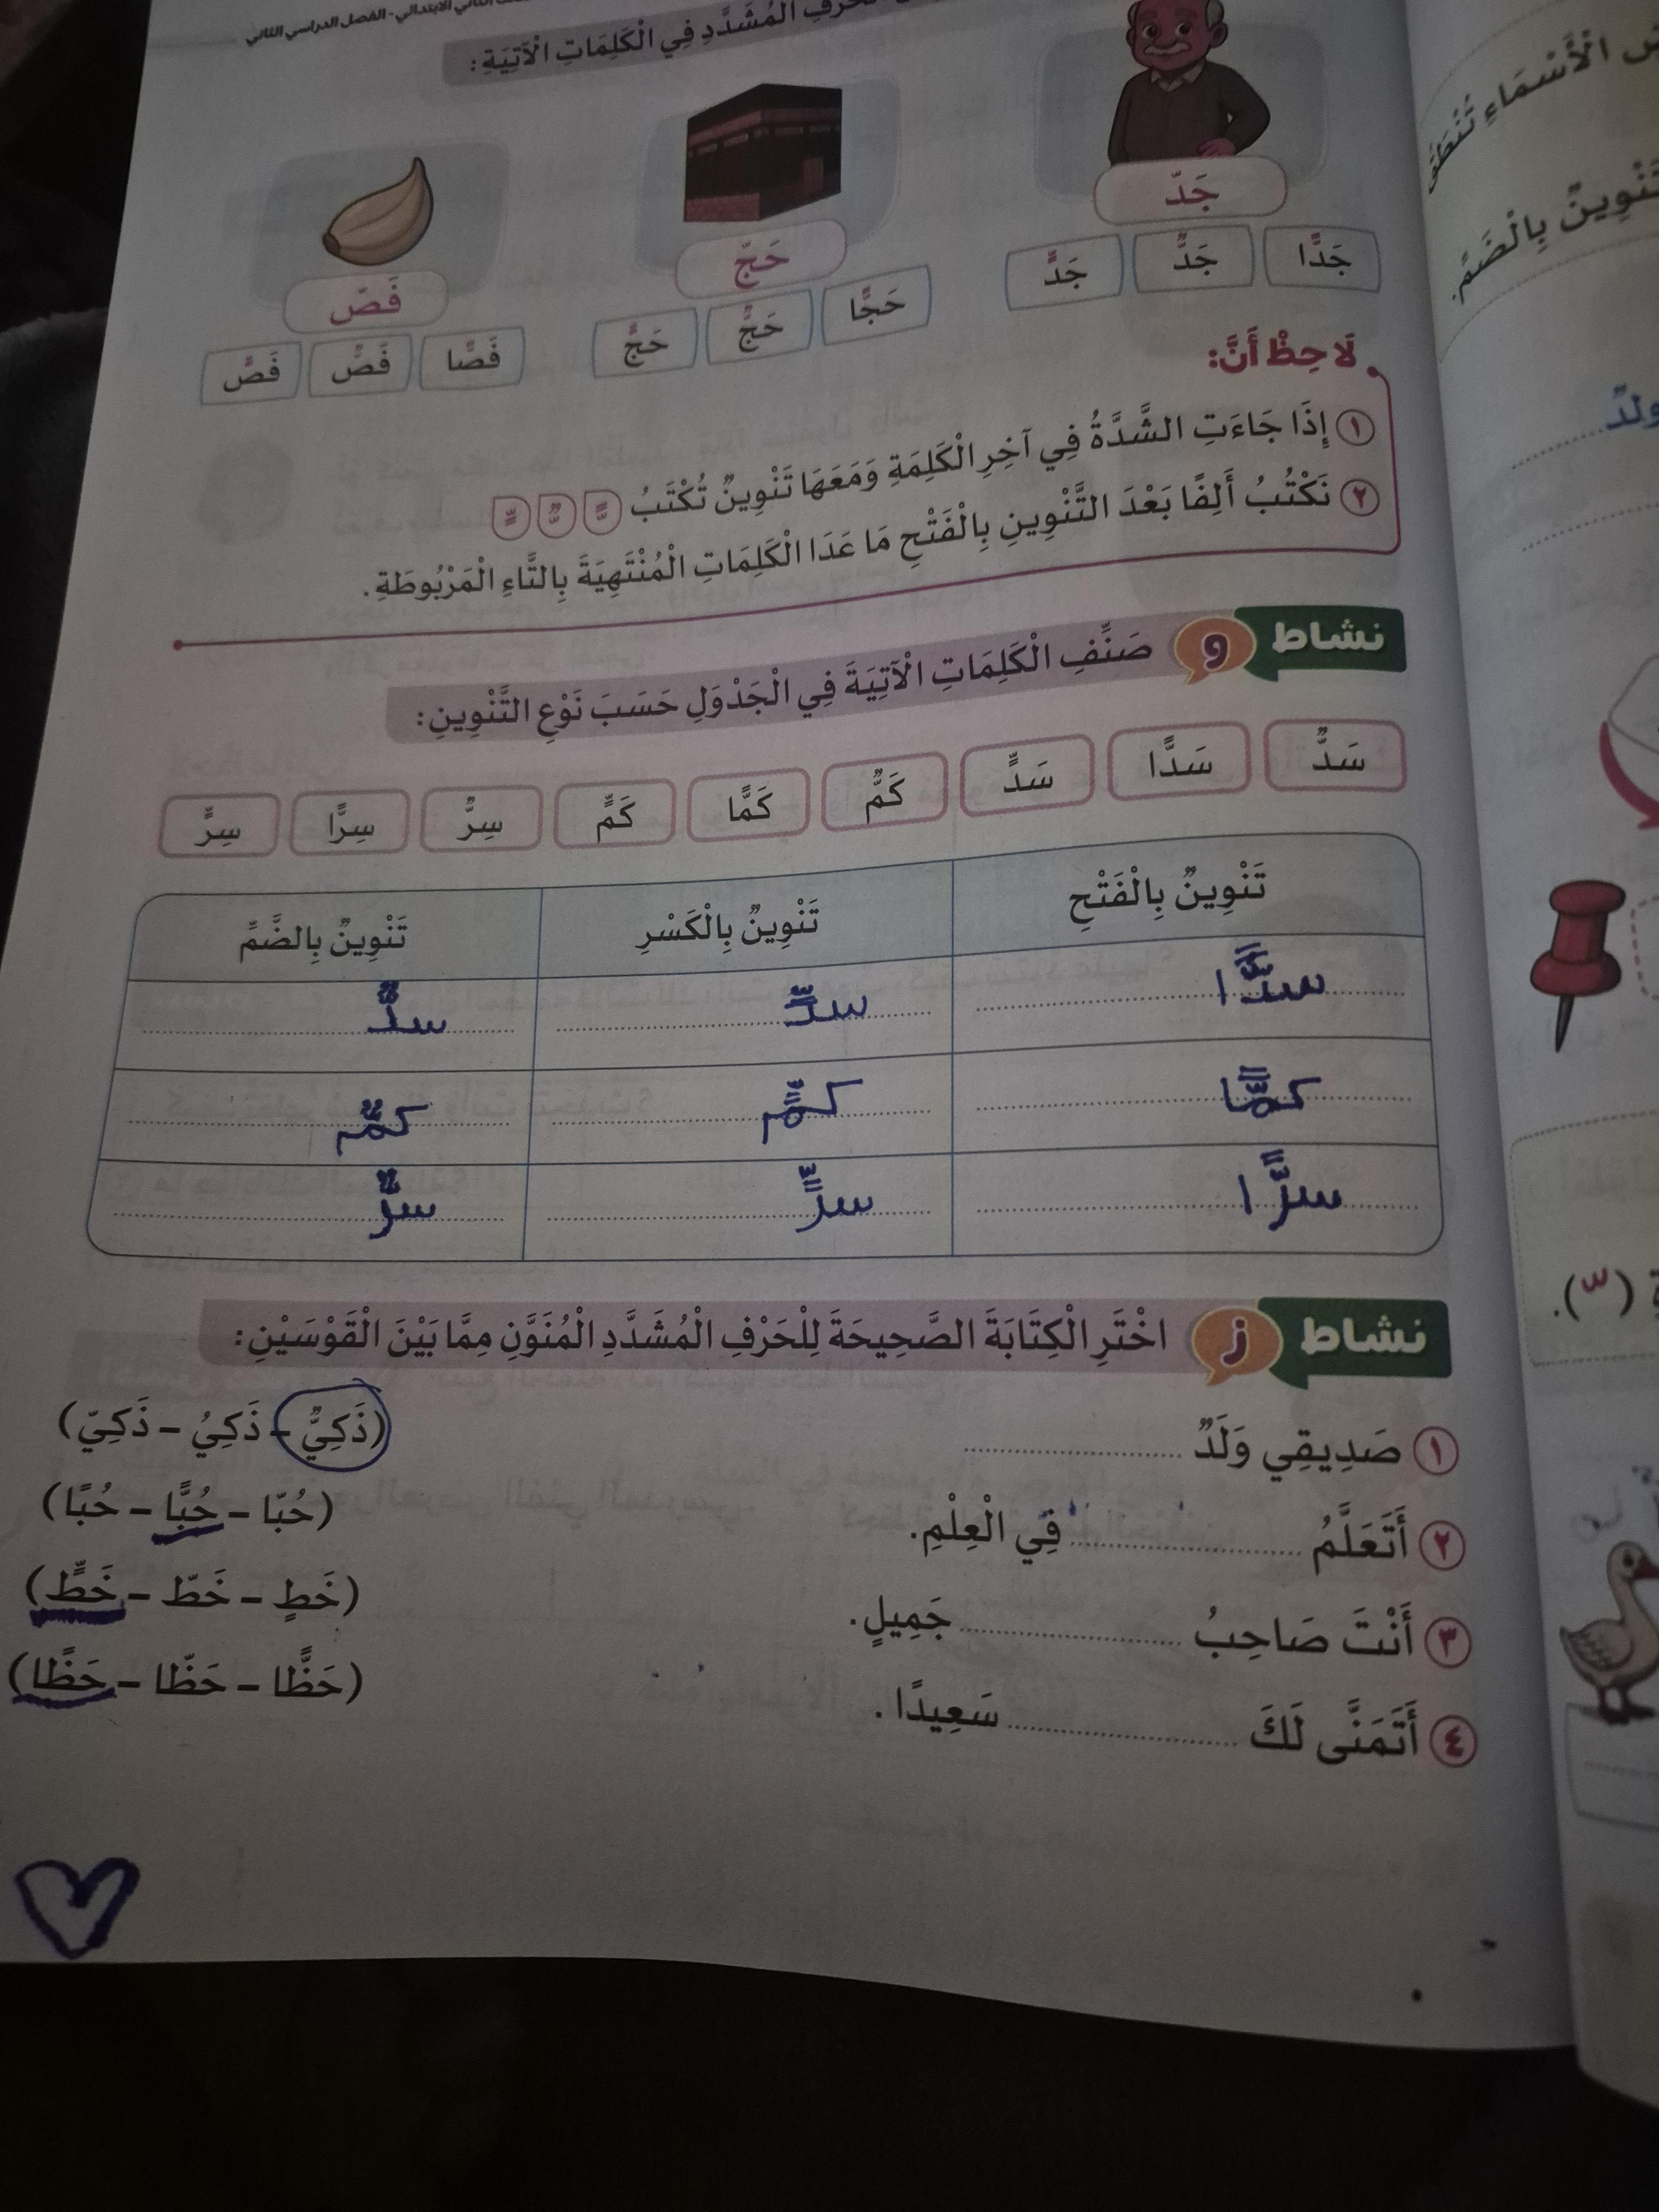 الثاني الابتدائي - الفصل الدراسي الثاني
الْمُشَدَّدِ فِي الْكَلِمَاتِ الْآتِيَةِ:
جَدّ
جَدًّا جَدٌّ جَدٍّ
حَجّ
حَجًّا حَجٌّ حَجٍّ
فَصّ
فَصًّا فَصٌّ فَصٍّ
لَاحِظْ أَنَّ:
١ إِذَا جَاءَتِ الشَّدَّةُ فِي آخِرِ الْكَلِمَةِ وَمَعَهَا تَنْوِينٌ تُكْتَبُ ـًّ ـٌّ ـٍّ
٢ نَكْتُبُ أَلِفًا بَعْدَ التَّنْوِينِ بِالْفَتْحِ مَا عَدَا الْكَلِمَاتِ الْمُنْتَهِيَةَ بِالتَّاءِ الْمَرْبُوطَةِ.
نشاط و صَنِّفِ الْكَلِمَاتِ الْآتِيَةَ فِي الْجَدْوَلِ حَسَبَ نَوْعِ التَّنْوِينِ:
سَدٌّ سَدًّا سَدٍّ كَمٌّ كَمًّا كَمٍّ سِرٌّ سِرًّا سِرٍّ
تَنْوِينٌ بِالْفَتْحِ تَنْوِينٌ بِالْكَسْرِ تَنْوِينٌ بِالضَّمِّ
سدًّا سدٍّ سدٌّ
كمًّا كمٍّ كمٌّ
سرًّا سرٍّ سرٌّ
نشاط ز اخْتَرِ الْكِتَابَةَ الصَّحِيحَةَ لِلْحَرْفِ الْمُشَدَّدِ الْمُنَوَّنِ مِمَّا بَيْنَ الْقَوْسَيْنِ:
١ صَدِيقِي وَلَدٌ ........ (ذَكِيٌّ - ذَكِيُ - ذَكِيّ)
٢ أَتَعَلَّمُ ........ فِي الْعِلْمِ. (حُبّا - حُبًّا - حُبًا)
٣ أَنْتَ صَاحِبُ ........ جَمِيلٍ. (خَطٍ - خَطّ - خَطٍّ)
٤ أَتَمَنَّى لَكَ ........ سَعِيدًا. (حَظًّا - حَظّا - حَظًا)
الْأَسْمَاءِ تُنْطَقُ
تَنْوِينٌ بِالْضَمِّ.
ولدٌ